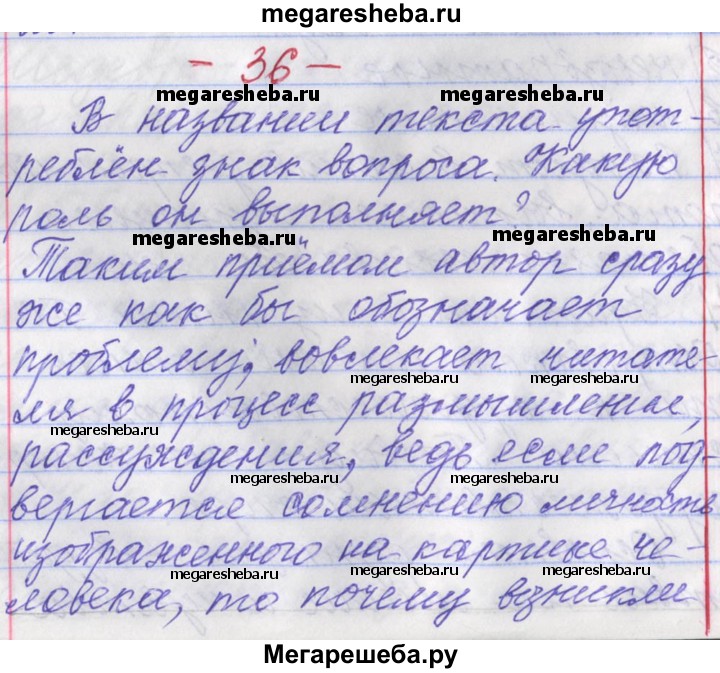 megaresheba.ru
- 36 -
megaresheba.ru megaresheba.ru
В названии текста упот-
реблён знак вопроса. Какую
роль он выполняет?
megaresheba.ru megaresheba.ru
Таким приёмом автор сразу
же как бы обозначает
проблему, вовлекает читате-
megaresheba.ru megaresheba.ru
ля в процесс размышления,
megaresheba.ru
рассуждения, ведь если под-
megaresheba.ru megaresheba.ru
вергается сомнению личность
изображенного на картине че-
megaresheba.ru megaresheba.ru
ловека, то почему взникли
Мегарешеба.ру